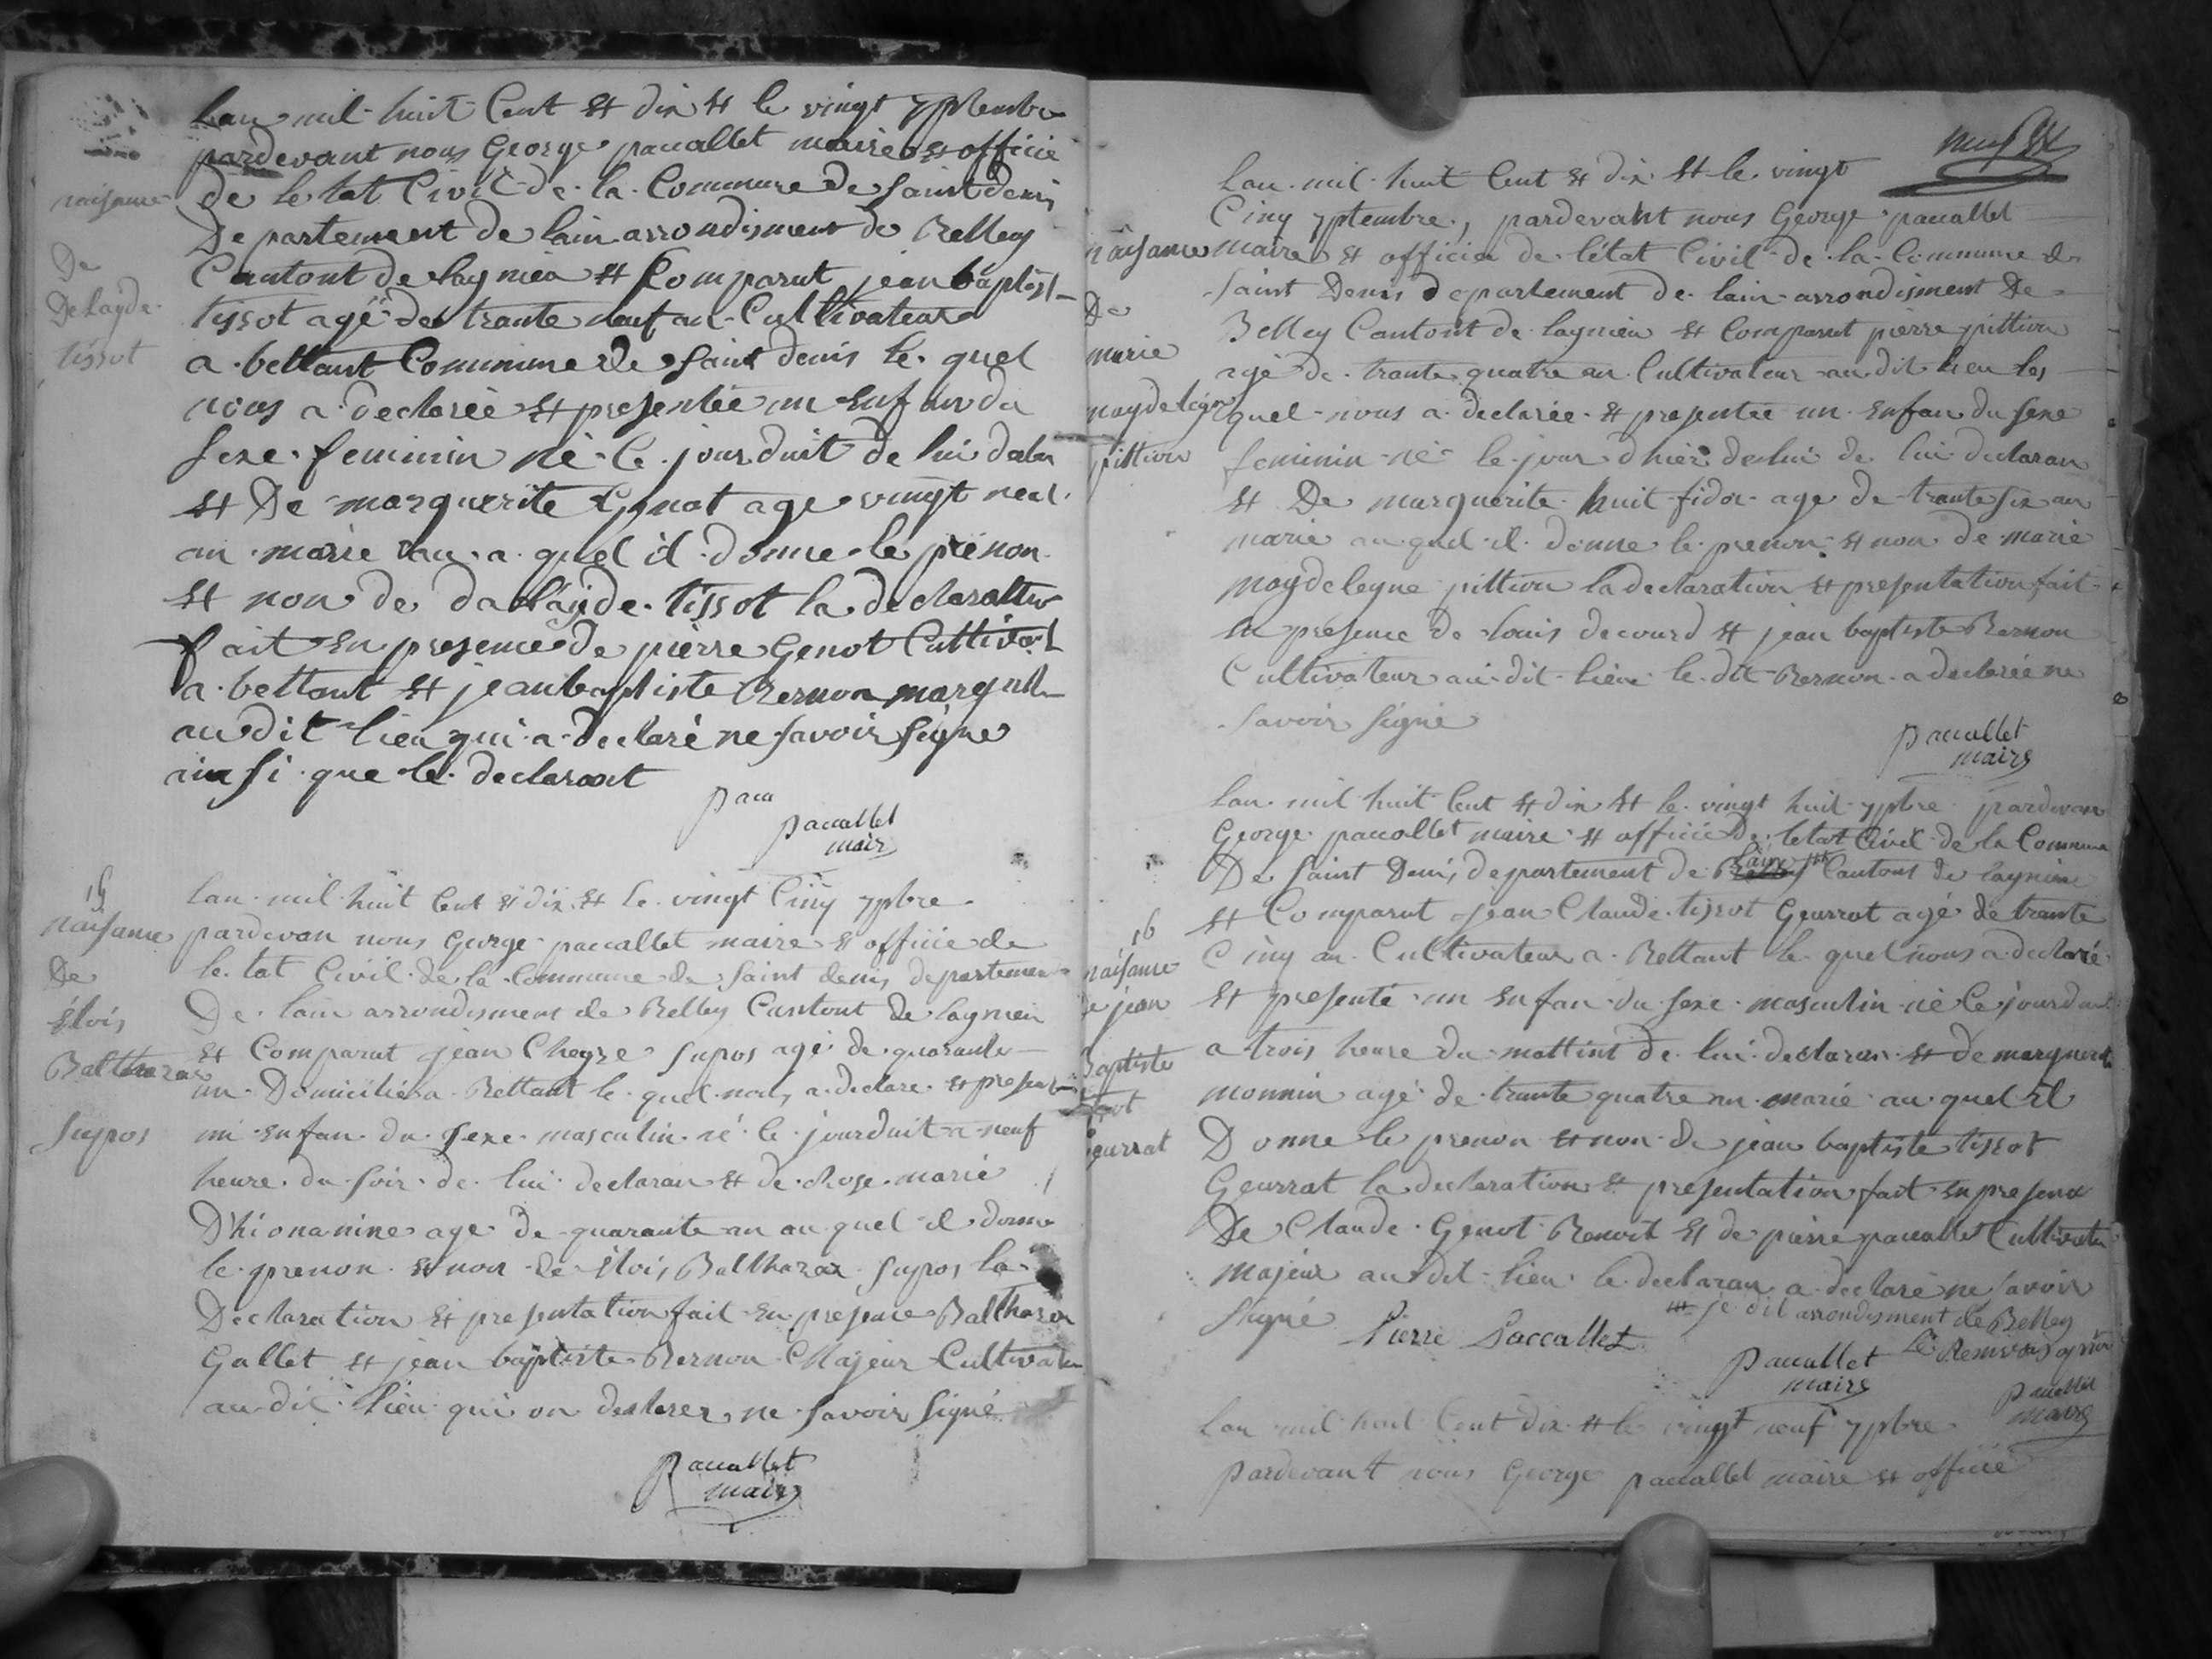 naisance
De
Delayde
tissot
Lan mil huit Cent et dix et le vingt 7ptembre
pardevant nous George paccallet maire et officie
de le tat Civil de la Commune de Saint denis
Departement de lain arrondisment de Belley
Cantont de lagnieu et Comparut jean baptist
tissot agé de trante neuf an Cultivateur
a bettant Commune de Saint denis le quel
nous a declareé et presentée un enfan du
sexe feminin né le jourduit de lui declar
et De marguerite Genot age vingt neuf
an marié au a quel il donne le prenon
et non de dalayde tissot la declaration
fait en presence de pierre Genot Cultivat
a bettant et jean baptiste Bernon
au dit lieu qui a declaré ne savoir signe
ainsi que le declarant
pacu
paccallet
maire
15
naisance
De
élois
Balthazar
Supos
lan mil huit Cent et dix et le vingt Cinq 7pbre
pardevan nous George paccallet maire et officie de
le tat Civil de la Commune de Saint denis departement
De lain arrondisment de Belley Cantont de lagnieu
et Comparut jean Supos agé de quarante
an Domicilié a Bettant le quel nous a declare et present
un enfan du sexe masculin né le jourduit a neuf
heure du soir de lui declaran et de Rose marie
age de quarante an au quel il donne
le prenon et non de élois Balthazar Supos la
Declaration et presentation fait en presence Balthazar
Gallet et jean baptiste Bernon Majeur Cultivateur
au dit lieu qui on declarer ne savoir signé
paccallet
maire
naisance
De
marie
maydelegne
pittion
Lan mil huit Cent et dix et le vingt
Cinq 7ptembre, pardevant nous George paccallet
maire et officier de létat Civil de la Commune de
Saint Denis departement de lain arrondisment De
Belley Cantont de lagnieu et Comparut pierre pittion
agé de trante quatre an Cultivateur au dit lieu les
quel nous a declarée et presentée un enfan du sexe
feminin né le jour dhier delui de lui declaran
et De marguerite huit fidor age de trante six an
marié au quel il donne le prenon et non de marie
maydelegne pittion la declaration et presentation fait
en presence de louis decourd et jean baptiste Bernon
Cultivateur au dit lieu le dit Bernon a declareé ne
savoir signé
paccallet
maire
16
naisance
de jean
Baptiste
tissot
Geurrat
Lan mil huit Cent et dix et le vingt huit 7pbre pardevan
George paccallet maire et officié De letat Civil de la Commune
De Saint Denis departement de lain Cantont de lagnieu
et Comparut jean Claude tissot Geurrat agé de trante
Cinq an Cultivateur a Bettant le quel nous a declaré
et presenté un enfan du sexe masculin né le jourduit
a trois heure du mattint de lui declaran et de marguerit
monnin agé de trante quatre an marié au quel il
Donne le prenon et non de jean baptiste tissot
Geurrat la declaration et presentation fait en presence
De Claude Genot Benoit et de pierre paccallet Cultivateur
majeur au dit lieu le declaran a declaré ne savoir
signé
je dit arrondisment de Belley
Pierre Paccallet
paccallet
maire
paccallet
maire
Lan mil huit Cent dix et le vingt neuf 7pbre
pardevant nous George paccallet maire et officié